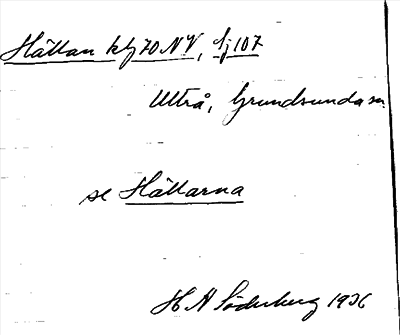 Hällan kbj 70 NV, Sj 107
Utrå, Grundsunda sn
se Hällarna
H A Söderberg 1936